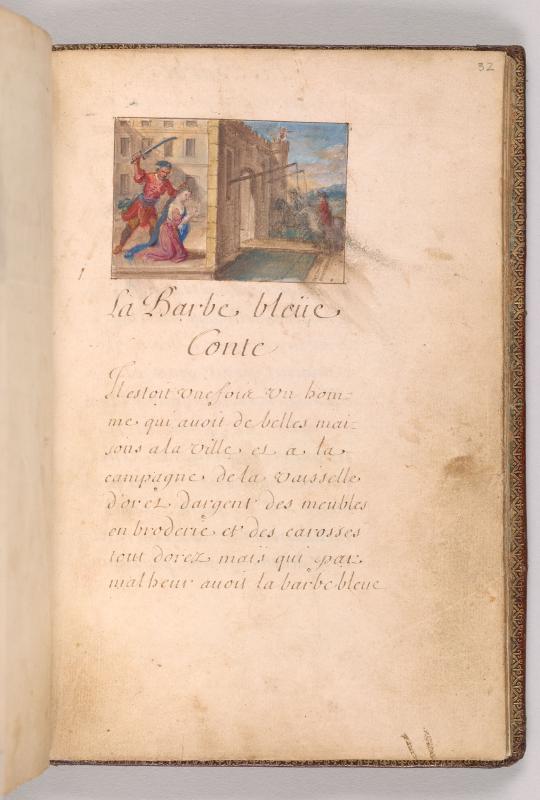 32
La Barbe bleüe
Conte
Il estoit une fois un hom-
me qui avoit de belles mai-
sons a la ville et a la
campagne de la vaisselle
d'or et dargent des meubles
en broderie et des carosses
tout dorez mais qui par
malheur avoit la barbe bleue